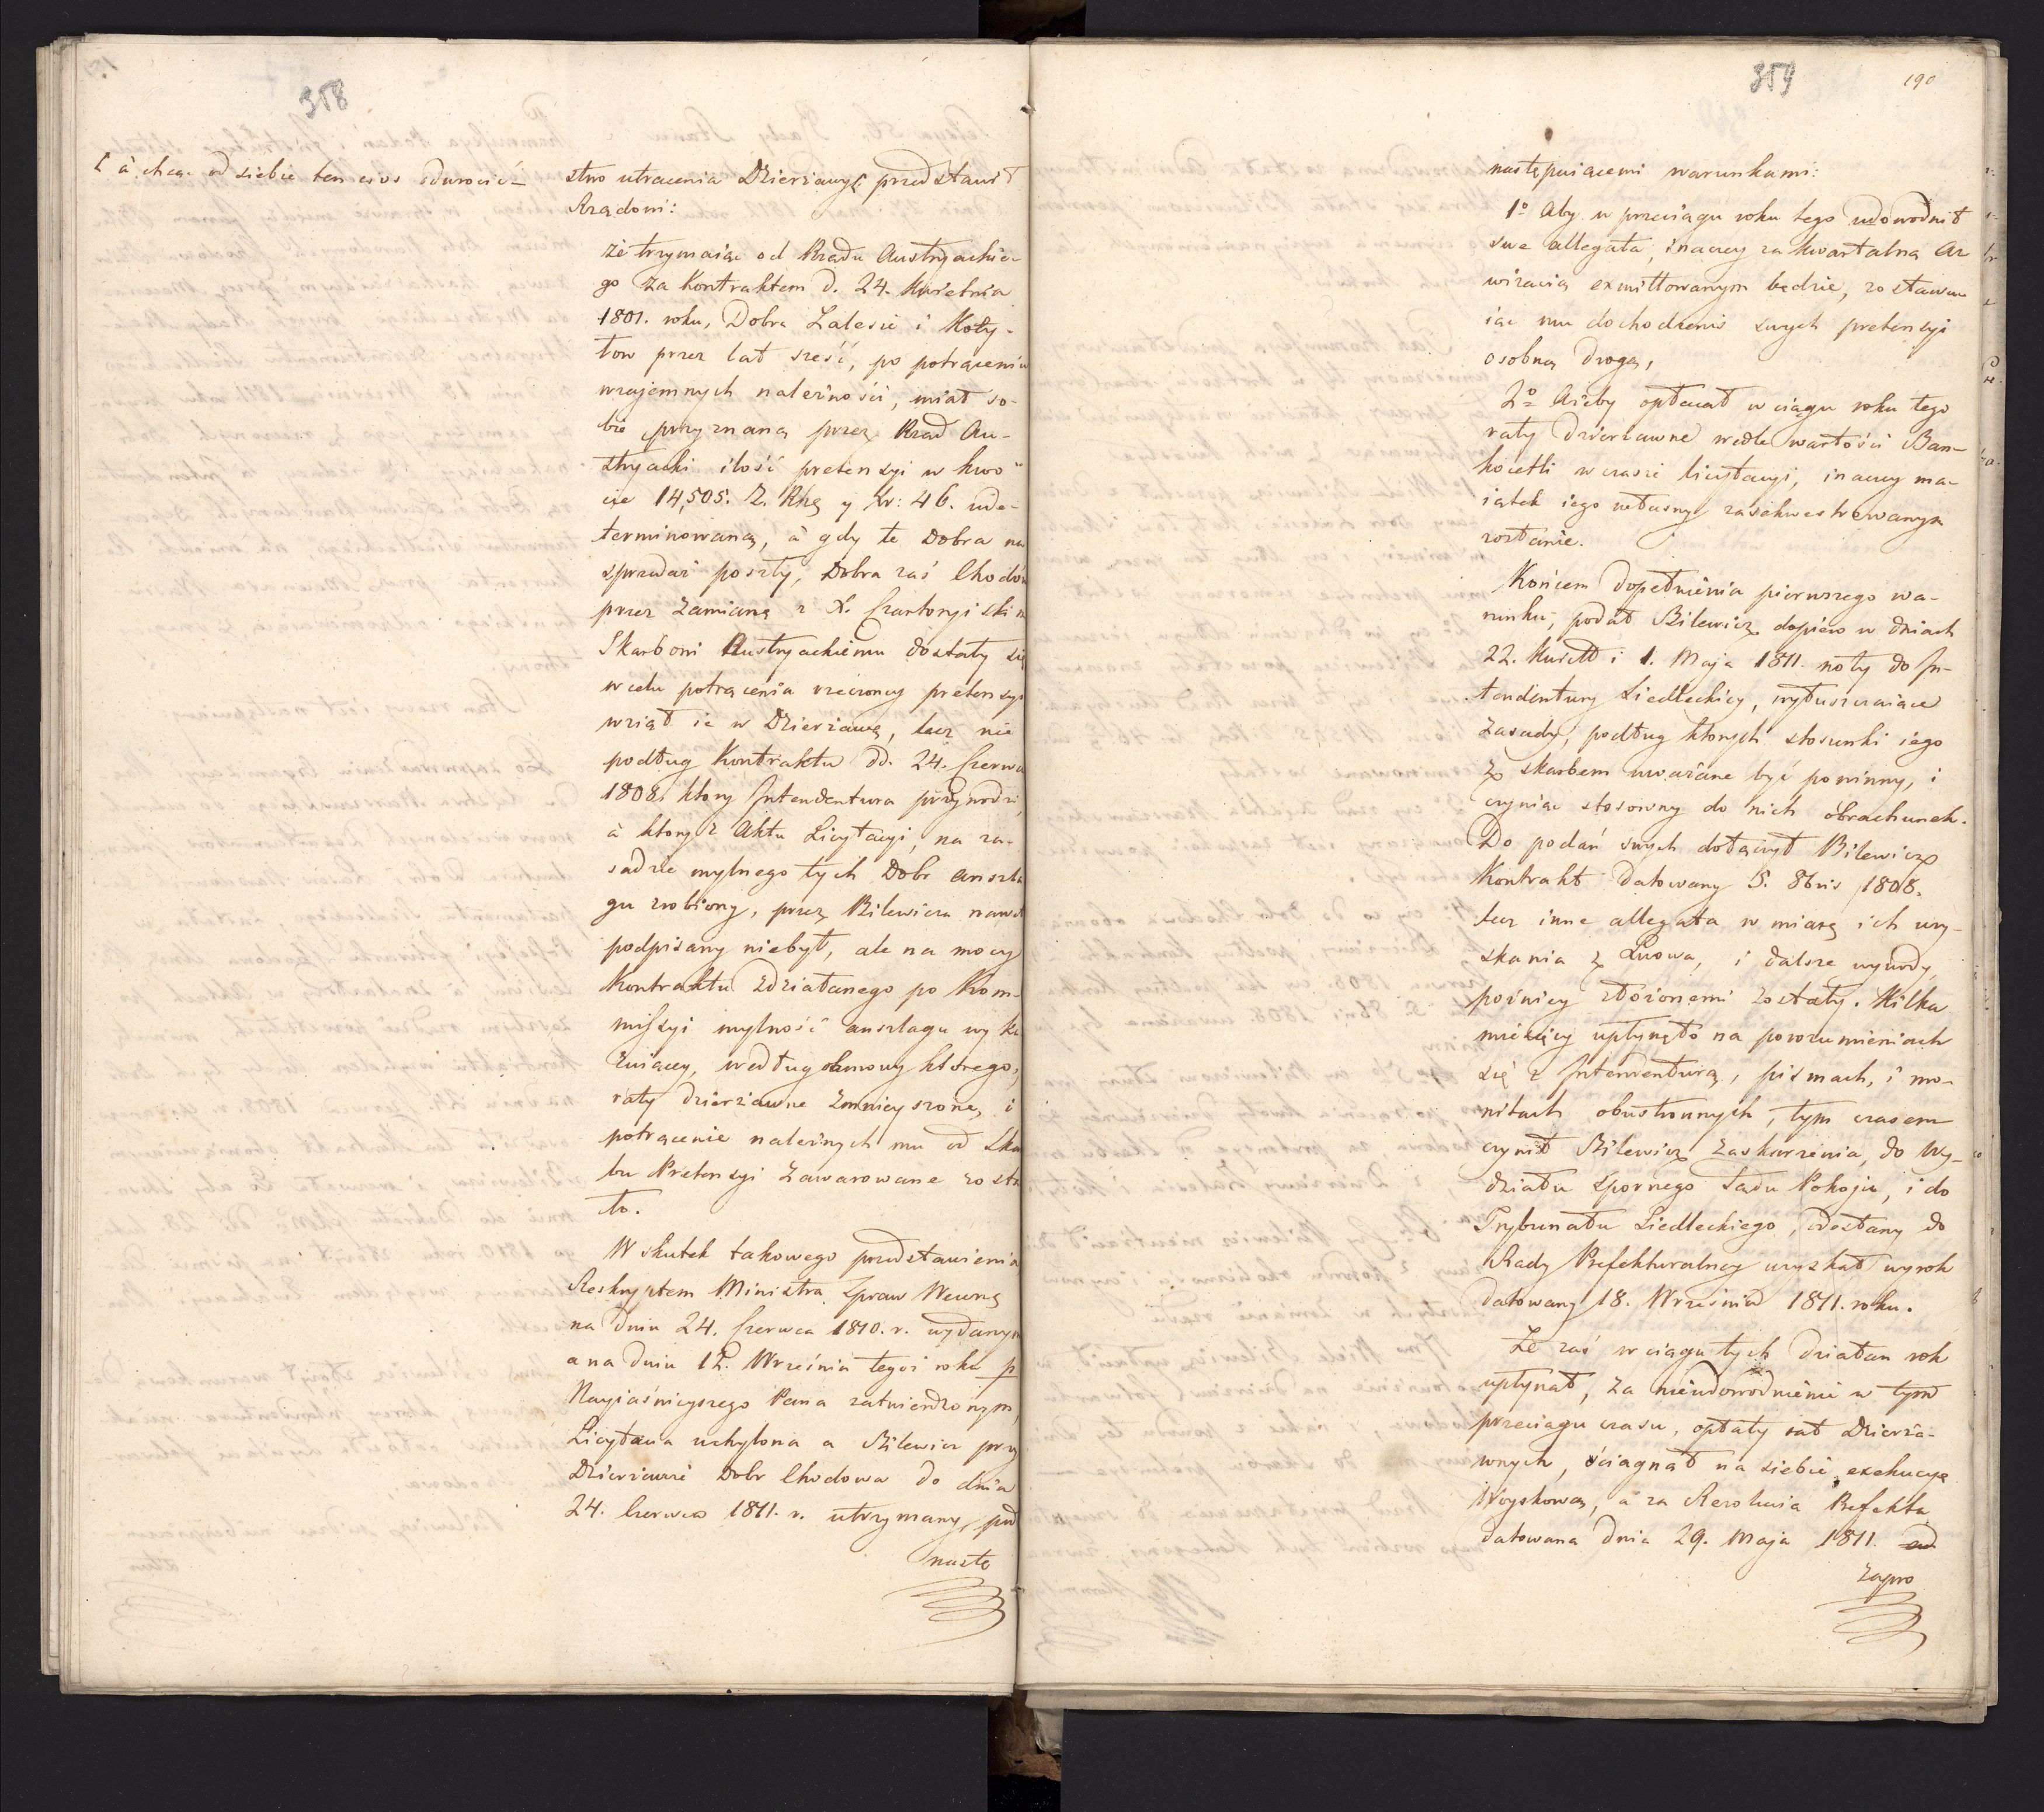 358
[ à chcąc od siebie ten cios odwrocić –
stwo utracenia Dzierżawy [ przedstawił
Rządowi:
że trzymaiąc od Rządu Austryackie-
go za Kontraktem d. 24. Kwietnia
1801. roku, Dobra Zalesie i Koły-
tow przez lat sześć, po potrąceniu
wzajemnych należności, miał so-
bie przyznaną przez Rząd Au-
stryacki ilość pretensyi w kwo-
cie 14,505. Z. Rhą y Xr: 46. ude-
terminowaną, à gdy te Dobra na
sprzedaż poszły, Dobra zaś Chodów
przez zamianę z X. Czartoryiskim
Skarbowi Austryackiemu dostały się
w celu potrącenia rzeczoney pretensyi
wziął ie w Dzierżawę, lecz nie
podług Kontraktu dd. 24. Czerwca
1808. ktory Intendentura przywodzi,
à ktory z Aktu Licytacyi, na za-
sadzie mylnego tych Dobr anszla
gu zrobiony, przez Bilewicza nawet
podpisany niebył, ale na mocy
Kontraktu zdziałanego po Kom-
missyi mylność anszlagu wyka
zuiącey, według osnowy ktorego,
raty dzierżawne zmnieyszone, i
potrącenie należnych mu od Skar
bu Pretensyi zawarowane zosta
ło.
W skutek takowego przedstawienia
Reskryptem Ministra Spraw Wewnę
na dniu 24. Czerwca 1810. r. wydanym
a na dniu 12. Września tegoż roku p
Nayiaśnieyszego Pana zatwierdzonym,
Licytacya uchylona a Bilewicz przy
Dzierżawie Dobr Chodowa do dnia
24. Czerwca 1811. r. utrzymany, pod
nastę
359
190
następuiącemi warunkami:
1º Aby w przeciągu roku tego udowodnił
swe allegata, inaczey za kwartalną Ar
wizacią exmittowanym będzie, zostawu
iąc mu dochodzenie swych pretensyi
osobną drogą,
2º Ażeby opłacał w ciągu roku tego
raty dzierżawne wedle wartości Ban-
kocetli w czasie licytacyi, inaczey ma-
iątek iego własny zasekwestrowanym
zostanie.
Końcem dopełnienia pierwszego wa-
runku, podał Bilewicz dopiero w dniach
22. Kwiet i 1. Maja 1811. noty do In-
tendentury Siedleckiey, wyłuszczaiące
zasady, podług ktorych stosunki iego
z skarbem uważane być powinny, i
czyniąc stosowny do nich obrachunek.
Do podań swych dołączył Bilewicz
Kontrakt datowany 5. 8bris 1808.
lecz inne allegata w miarę ich uzy-
skania z Lwowa, i dalsze wywody
poźniey złożonemi zostały. Kilka
miesięcy upłynęło na porozumieniach
się z Intendenturą, pismach, i mo-
nitach obustronnych, tym czasem
czynił Bilewicz zaskarżenia, do Wy-
działu Spornego Sądu Pokoju, i do
Trybunału Siedleckiego, odesłany do
Rady Prefekturalney uzyskał wyrok
datowany 18. Września 1811. roku.
Że zaś w ciągu tych działan rok
upłynął, za nieudowodnienie w tym
przeciągu czasu, opłaty rat Dzierża-
wnych, ściągnął na siebie exekucyę
Woyskową, a za Rezolucią Prefekta
datowaną dnia 29. Maja 1811.
zapro